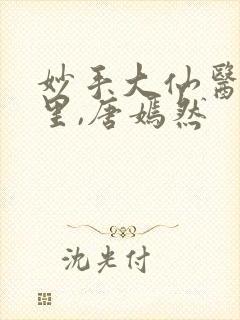 妙手大仙醫
里,唐嫣然
沈光付